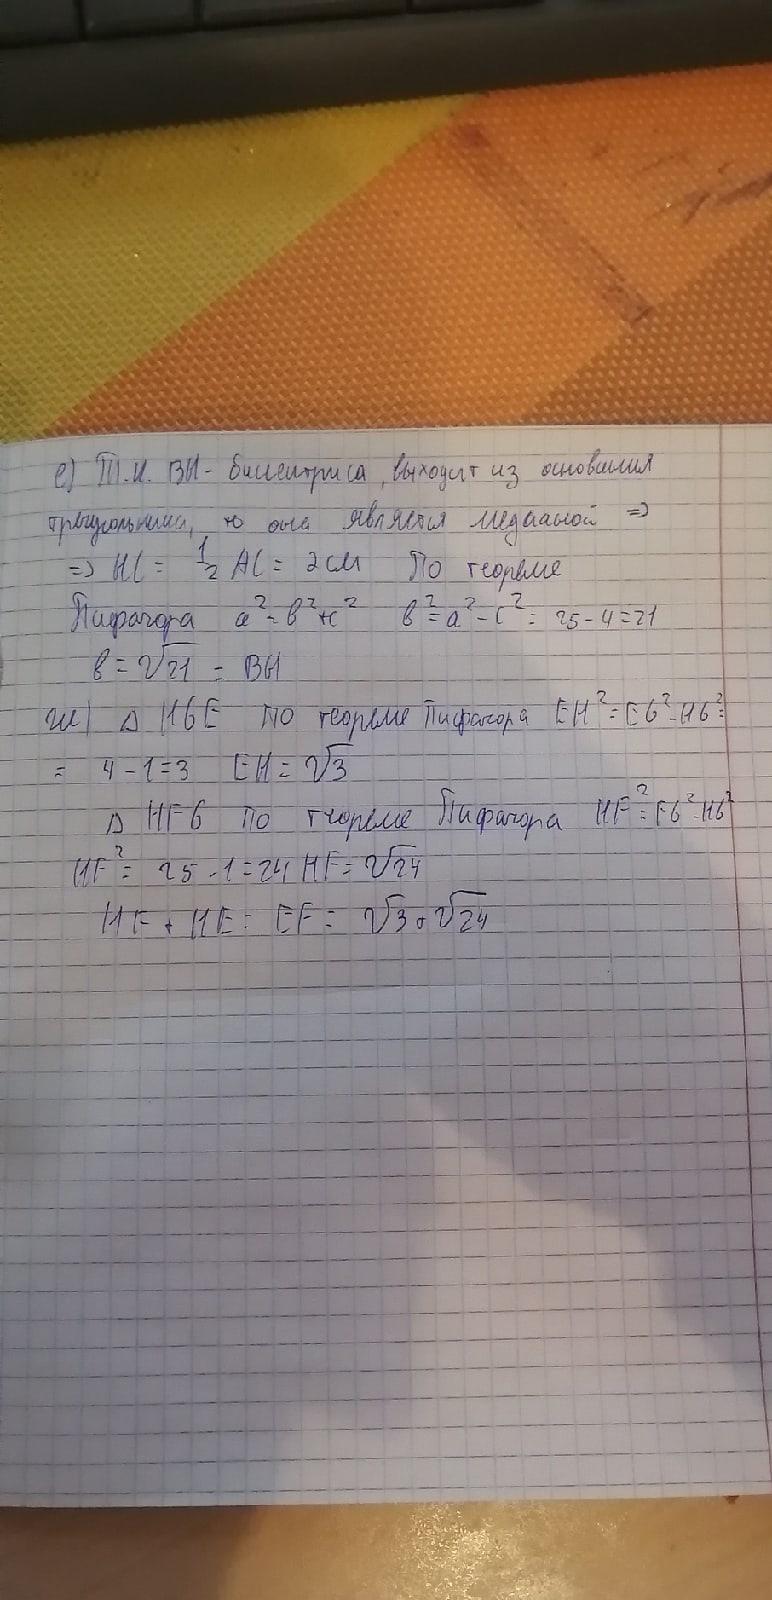 е) Т.к. ВН - биссектриса, выходит из основания
треугольника, то она является медианой =>
=> HC = 1/2 AC = 2 см По теореме
Пифагора a² = b² + c² b² = a² - c² = 25 - 4 = 21
b = √21 = BH
ж) △ HGE по теореме Пифагора EH² = EG² - HG² =
= 4 - 1 = 3 EH = √3
△ HFG по теореме Пифагора HF² = FG² - HG²
HF² = 25 - 1 = 24 HF = √24
HF + HE = EF = √3 + √24